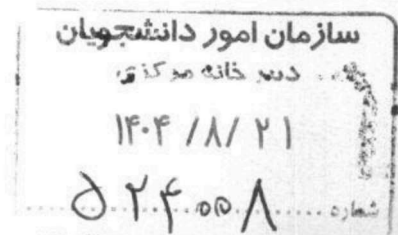 سازمان امور دانشجویان
دبیرخانه مرکزی
۱۴۰۴ /۸/ ۲۱
شماره